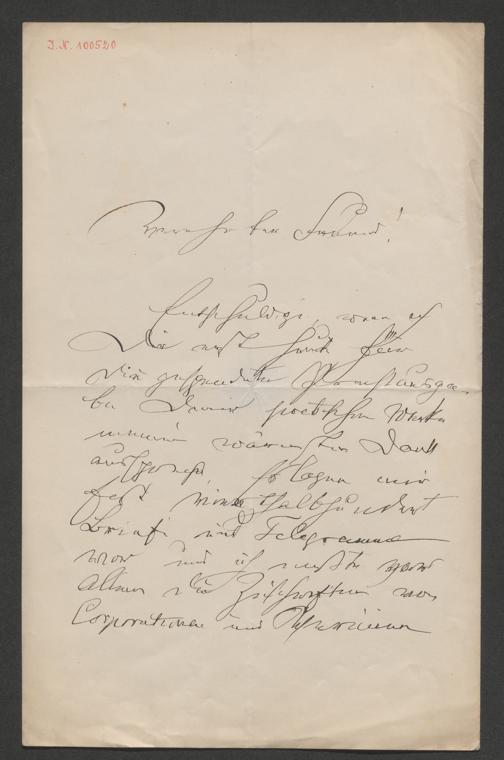 J. N. 100520
Verehrter Freund!
Entschuldige, wenn ich
Dir erst heute für
die gespendete Prachtausga-
be Deiner poetischen Werke
meinen wärmsten Dank
ausspreche. Es lagen mir
fast ein Halbhundert
Briefe und Telegramme
vor und ich mußte vor
allem die Zuschriften von
Corporationen und Vereinen